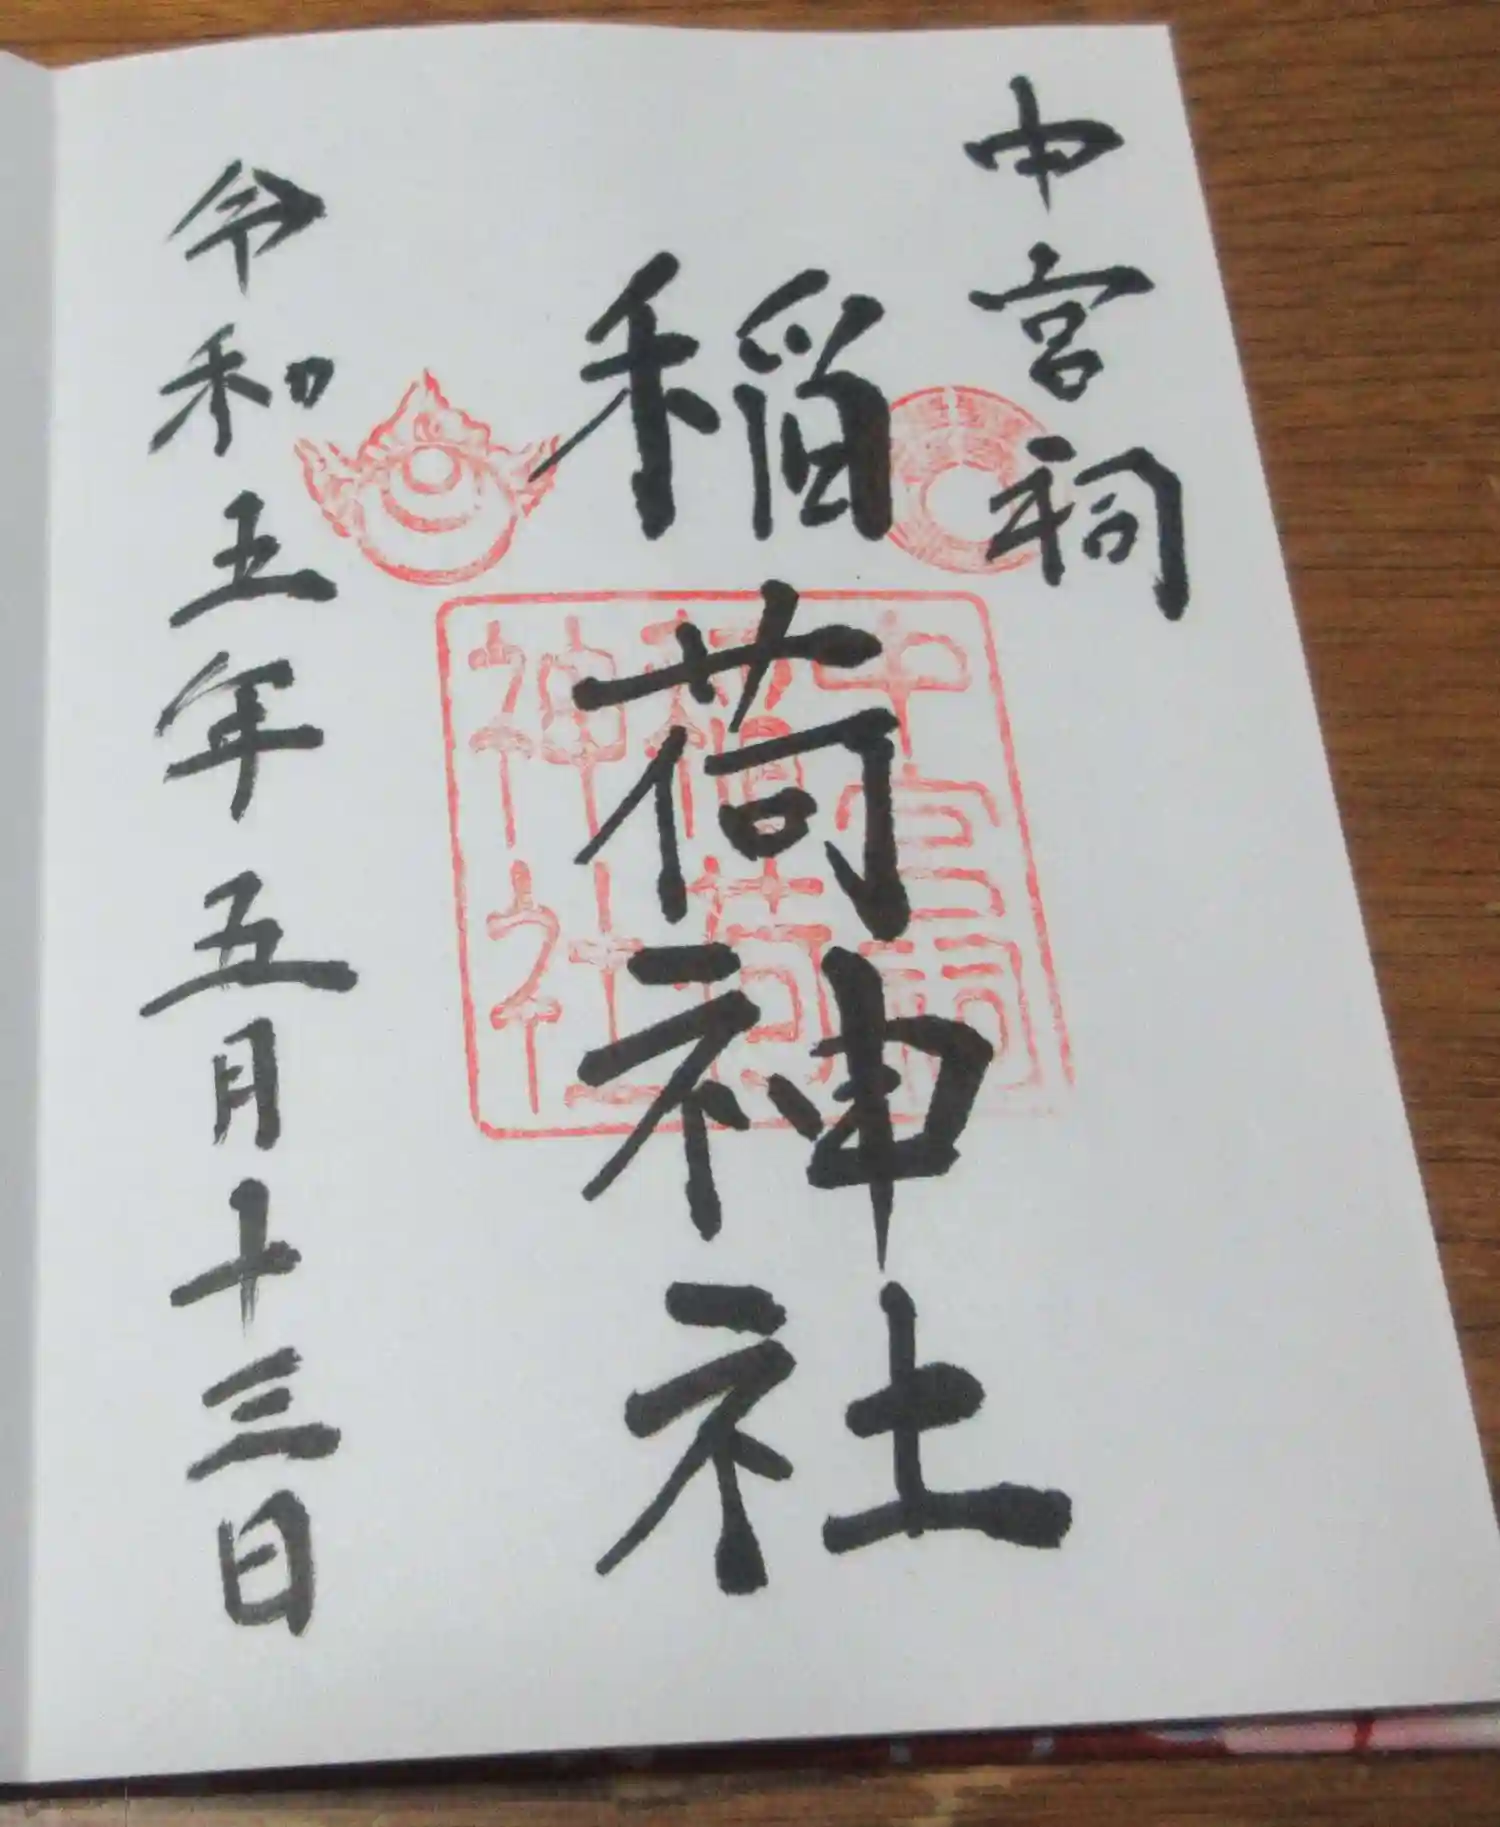 中宮祠
稲荷神社
令和五年五月十三日
中宮祠
稲荷
神社